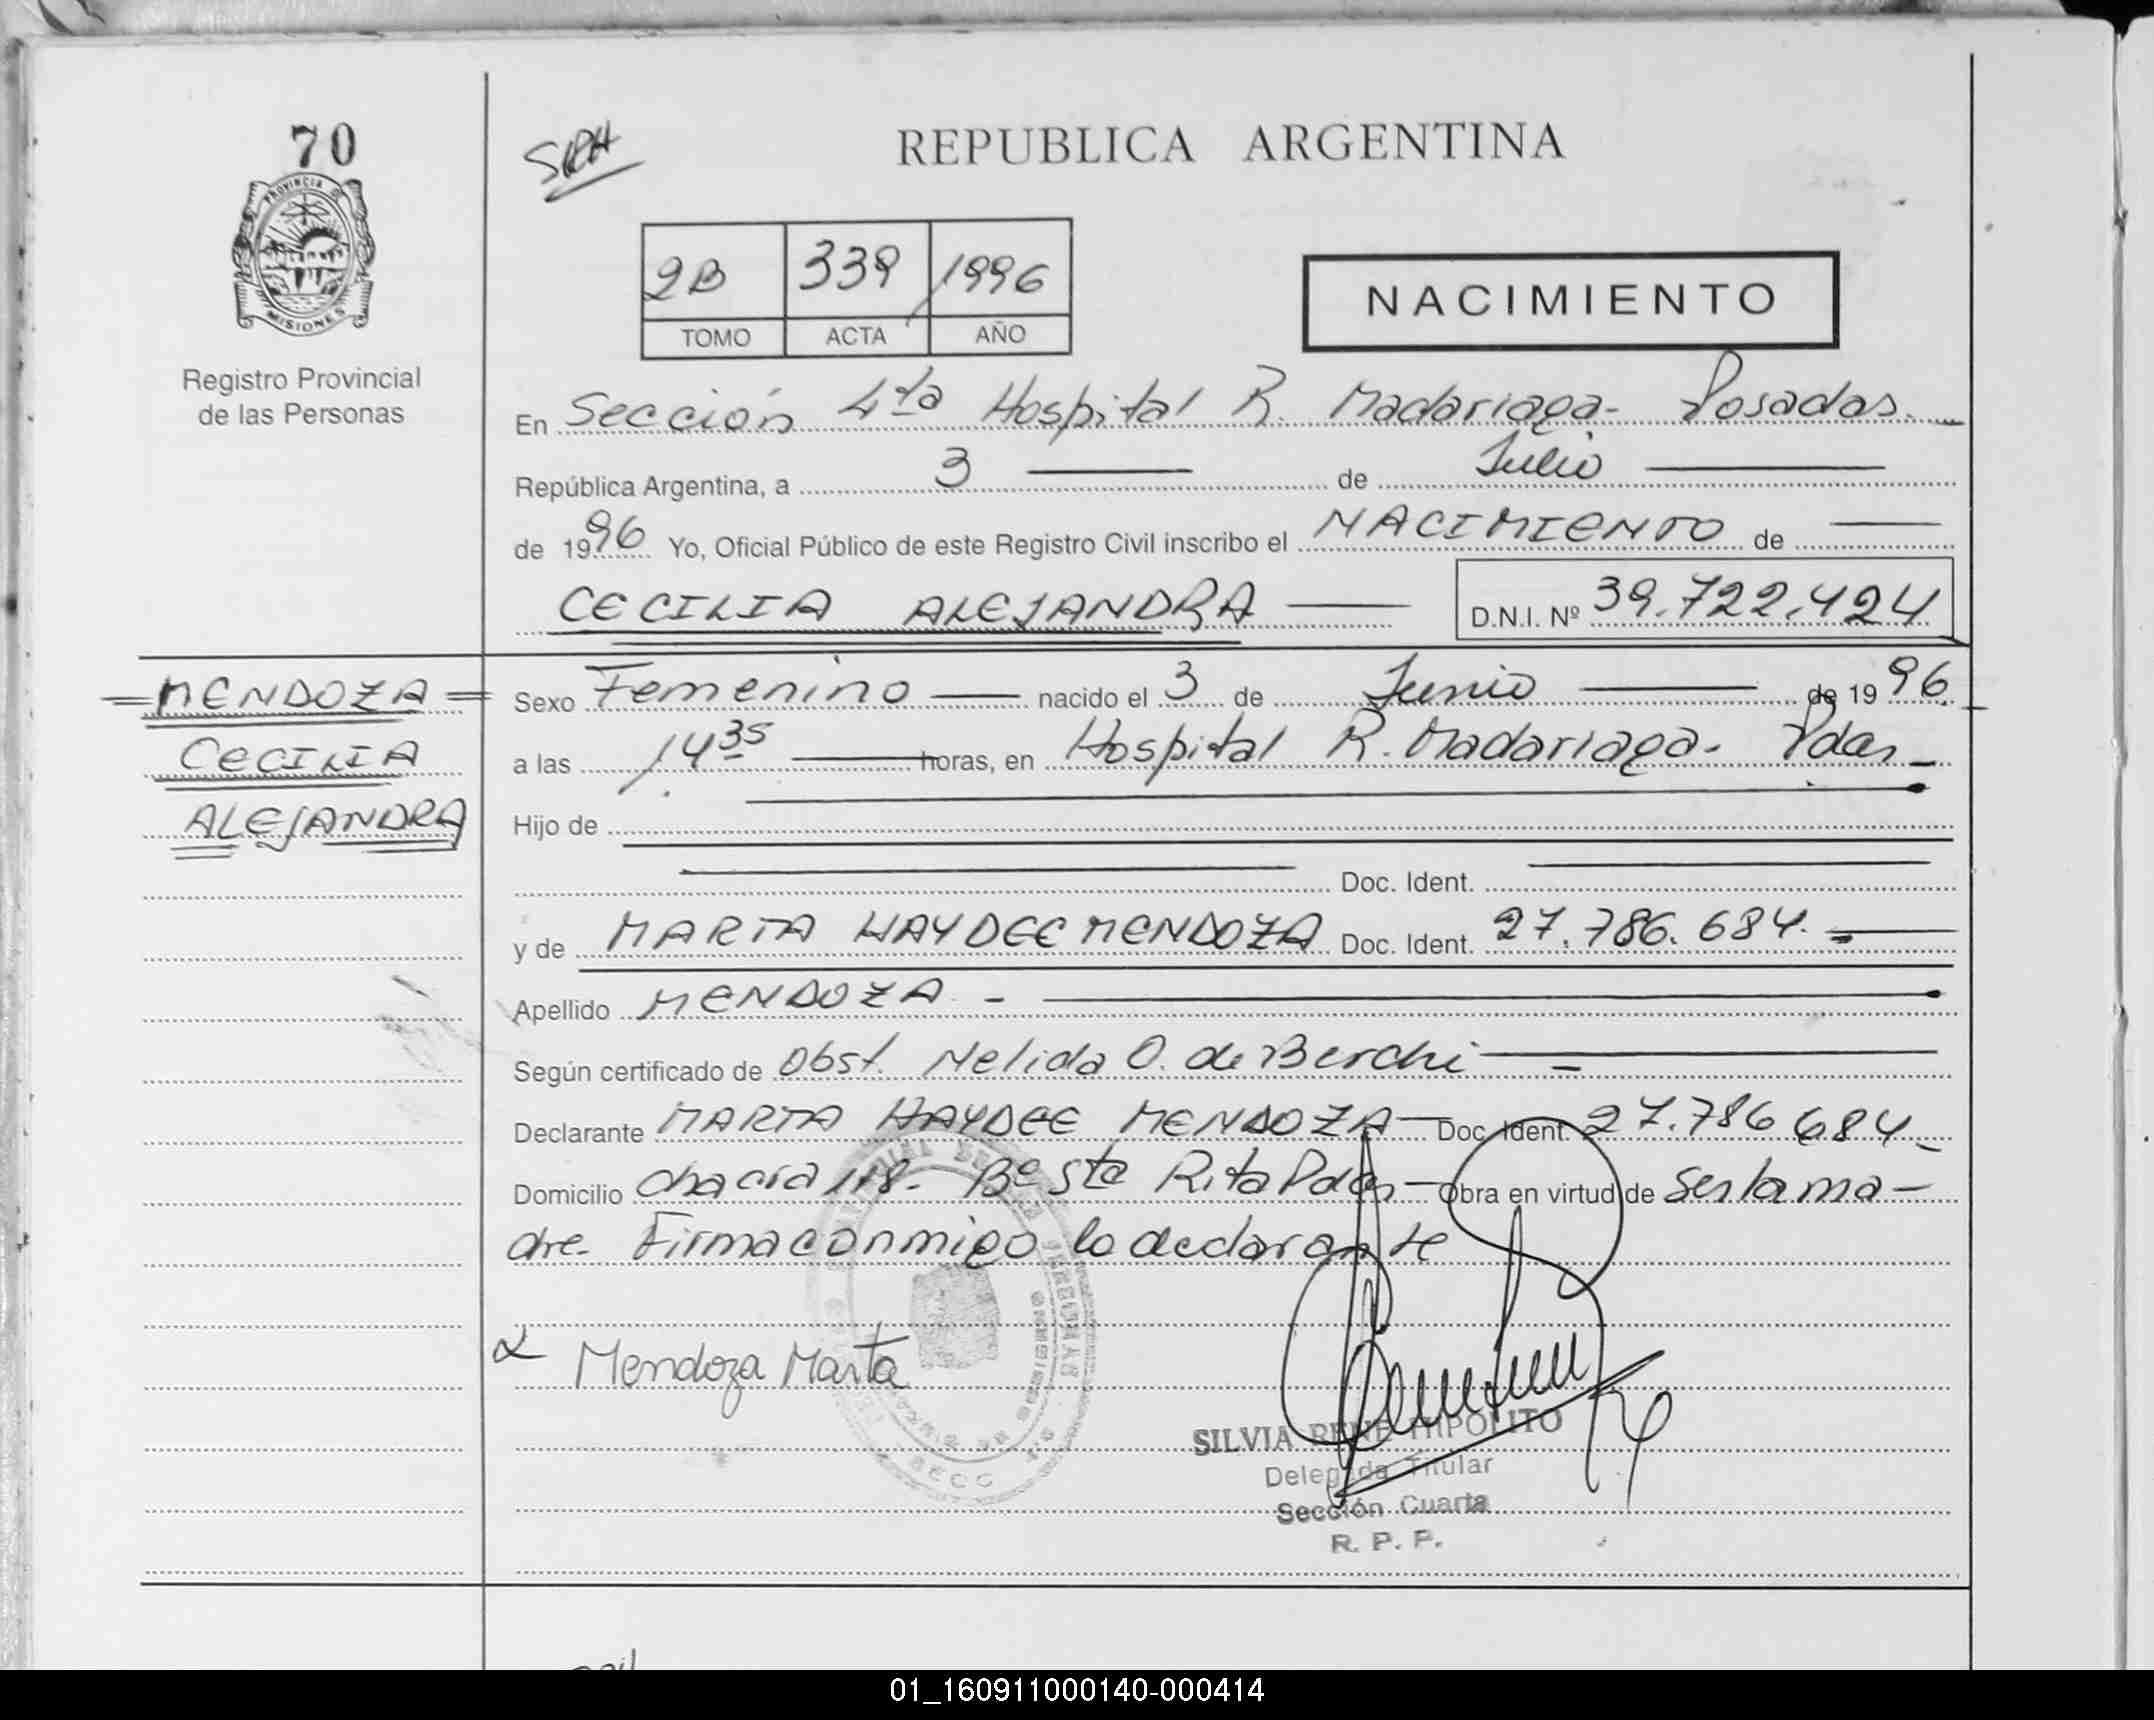 70
SRH
REPUBLICA ARGENTINA
PROVINCIA D
MISIONES
Registro Provincial
de las Personas
2B 339 1996
TOMO ACTA AÑO
NACIMIENTO
En Sección 4ta Hospital R. Madariaga- Posadas.
República Argentina, a 3 de Julio
de 1996 Yo, Oficial Público de este Registro Civil inscribo el NACIMIENTO de
CECILIA ALEJANDRA D.N.I. Nº 39.722.424
MENDOZA
CECILIA
ALEJANDRA
Sexo Femenino nacido el 3 de Junio de 1996.
a las 14 35 horas, en Hospital R. Madariaga. Pdas
Hijo de
Doc. Ident.
y de MARTA HAYDEE MENDOZA Doc. Ident. 27.786.684.
Apellido MENDOZA -
Según certificado de Obst. Nelida O. de Berchi
Declarante MARTA HAYDEE MENDOZA Doc. Ident. 27.786 684
Domicilio chacra 118. Bº Sta Rita Pdas Obra en virtud de ser la ma-
dre. Firma conmigo la declarante
Mendoza Marta
SILVIA RENE HIPOLITO
Delegada Titular
Sección Cuarta
R. P. P.
01_160911000140-000414